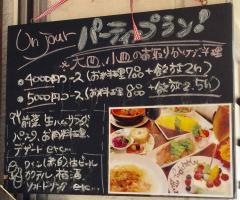 Un jour パーティプラン♪
※大皿、小皿のお取り分けプラン料理
4000円コース(お料理7品+飲放2h)
5000円コース(お料理8品+飲放2.5h)
前菜 生ハムサラダ
パスタ、お肉料理、
デザート etc...
ワイン(赤白)生ビール
カクテル 梅酒
ソフトドリンク etc...